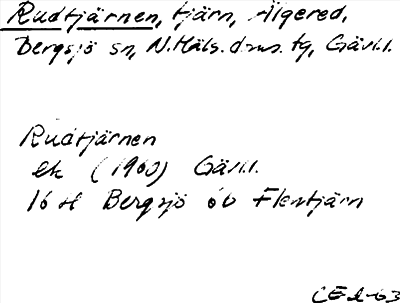 Rudtjärnen, tjärn, Älgered,
Bergsjö sn, N. Häls. doms. tg, Gävl.l.
Rudtjärnen
ek (1960) Gävl.l.
16 H Bergsjö ob Flertjärn
CE 2-63